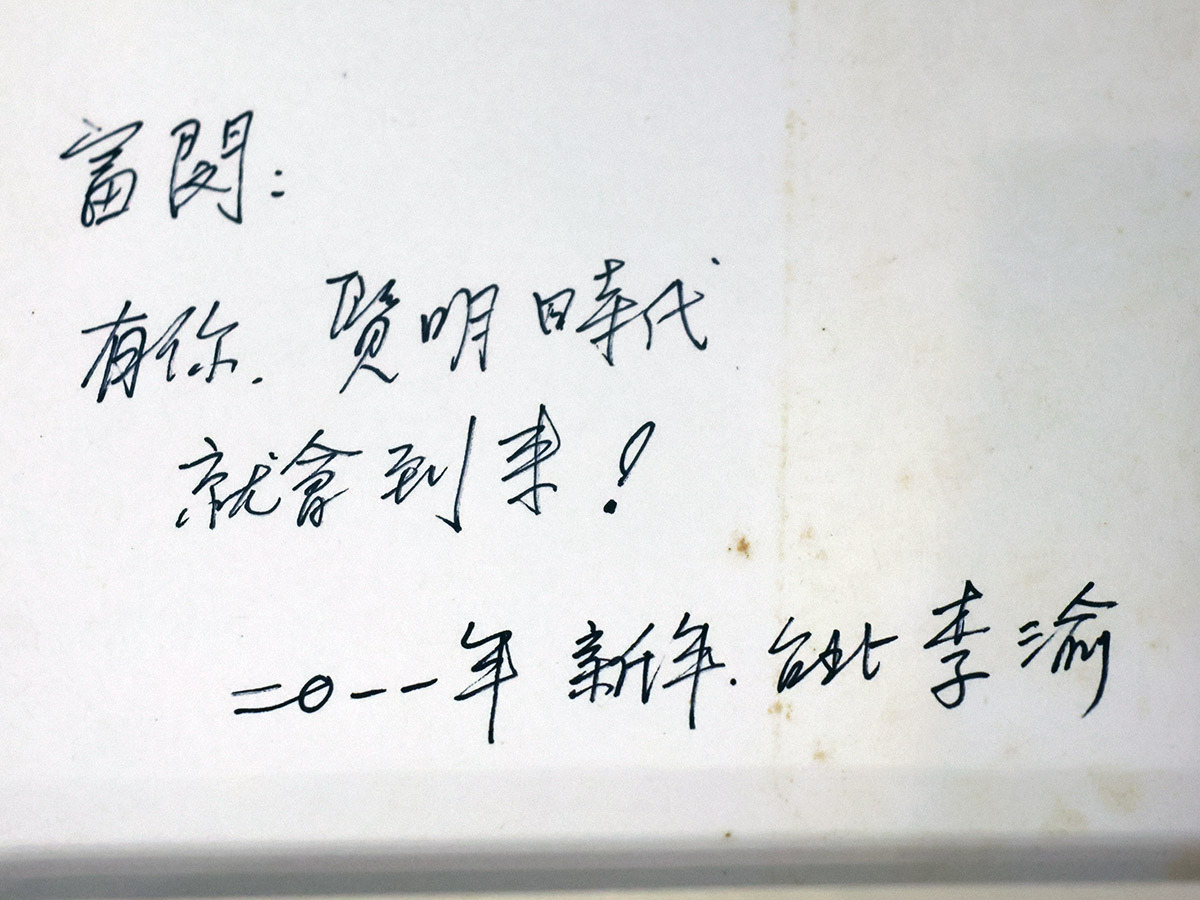 富閔：
有你．賢明時代
就會到來！
二〇一一年 新年．台北 李渝